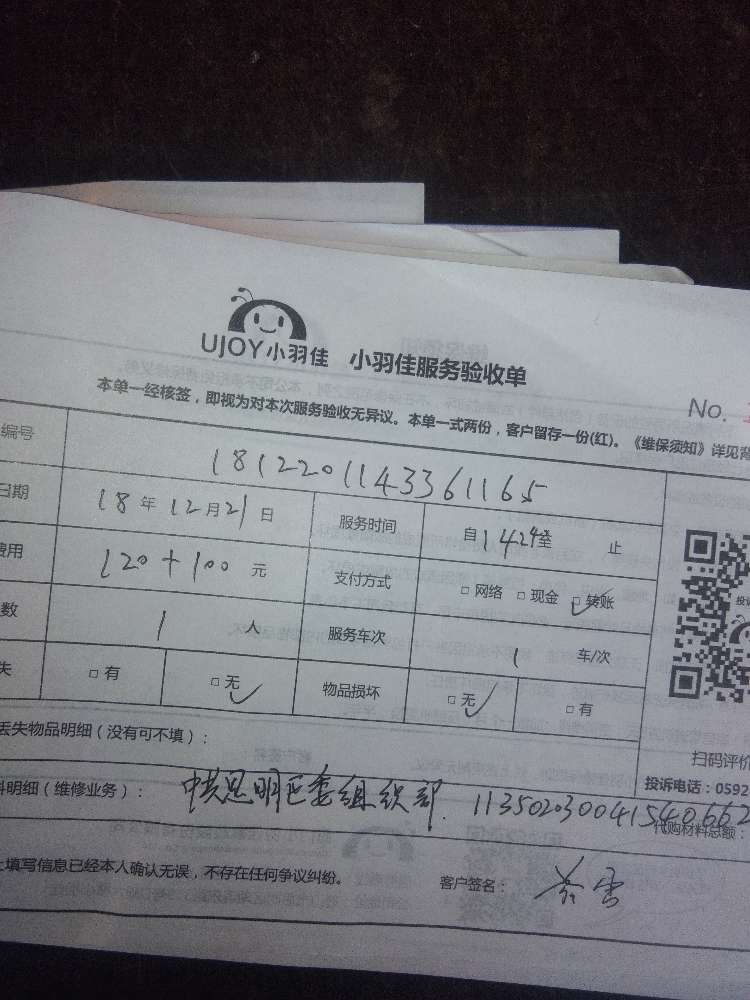 UJOY小羽佳 小羽佳服务验收单
No.
本单一经核签，即视为对本次服务验收无异议。本单一式两份，客户留存一份(红)。《维保须知》详见背
编号 1812201143361165
日期 18年12月21日 服务时间 自1424至 止
费用 120+100元 支付方式 □网络 □现金 □转账
数 1人 服务车次 1车/次
失 □有 □无 物品损坏 □无 □有
丢失物品明细（没有可不填）：
扫码评价
投诉电话：0592
料明细（维修业务）： 中共思明区委组织部. 113502030041540662
代购材料总额：
上填写信息已经本人确认无误，不存在任何争议纠纷。 客户签名：